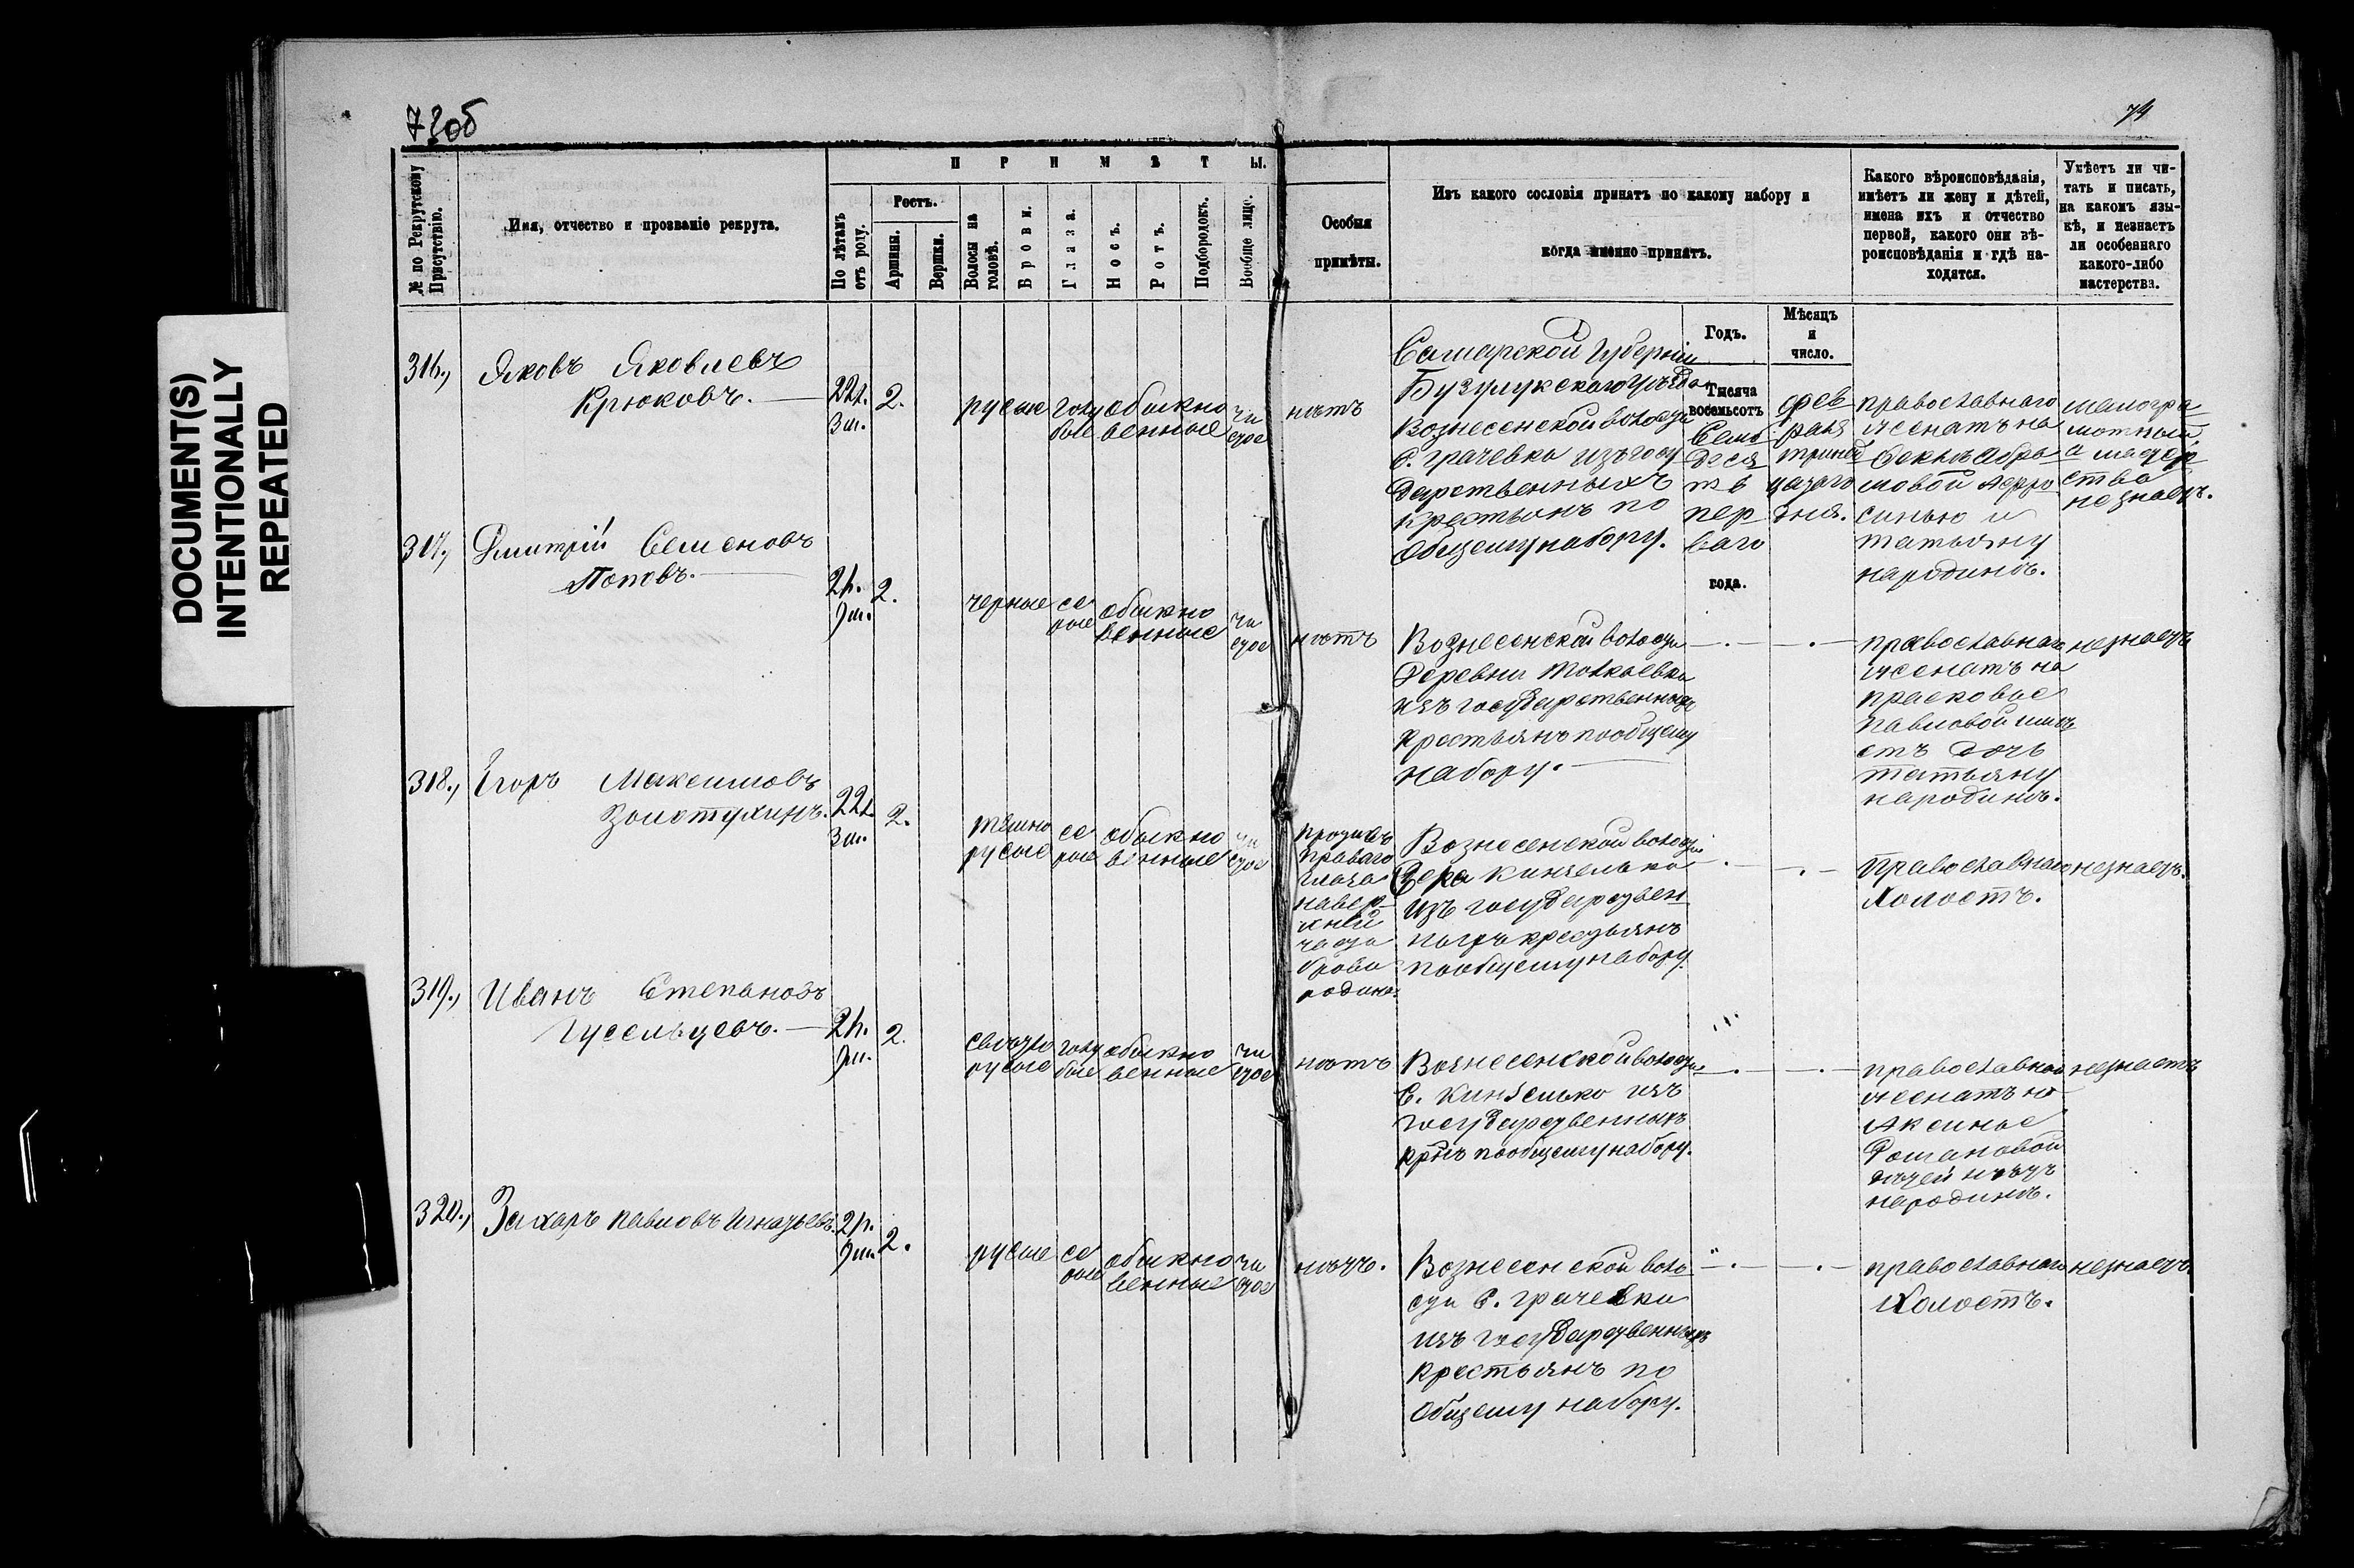 73об
74
DOCUMENT(S)
INTENTIONALLY
REPEATED
№ по Рекрутскому
Присутствію.
Имя, отчество и прозваніе рекрута.
ПРИМѢТЫ.
По лѣтамъ
отъ роду.
Ростъ.
Аршины.
Вершки.
Волосы на
головѣ.
Брови.
Глаза.
Носъ.
Ротъ.
Подбородокъ.
Вообще лицо.
Особыя
примѣты.
Изъ какого сословія принятъ по какому набору и
когда именно принятъ.
Какого вѣроисповѣданія,
имѣетъ ли жену и дѣтей,
имена ихъ и отчество
первой, какого они вѣ-
роисповѣданія и гдѣ на-
ходятся.
Умѣетъ ли чи-
тать и писать,
на какомъ язы-
кѣ, и незнаетъ
ли особеннаго
какого-либо
мастерства.
Годъ.
Мѣсяцъ
и
число.
316., Яковъ Яковлевъ
Крюковъ.
22л.
3м.
2.
русые
голу
бые
обыкно
венные
чи
стое
нѣтъ
Самарской Губерніи
Бузулукскаго уѣзда
Вознесенской волости
С. Грачевка изъ госу
дарственныхъ
крестьянъ по
общему набору.
Тысяча
восемьсотъ
Семь
деся
тъ
пер
ваго
года.
фев
раля
тринад
цатаго
дня.
православнаго
женатъ на
Феклѣ Абра
мовой
синью и
татьяну
народинѣ.
малогра
мотный
а мастер
ство
незнаетъ.
317., Дмитрій Семеновъ
Поповъ.
2.
черные
се
рые
обыкно
венные
чи
стое
нѣтъ
Вознесенской волости
Деревни Толкаевка
изъ государственныхъ
крестьянъ пообщему
набору.
православнаго
женатъ на
прасковье
павловой имѣ
етъ дочь
татьяну
народинѣ.
незнаетъ
318., Егоръ Максимовъ
Золотухинъ.
22л.
3м.
2.
темно
русые
се
рые
обыкно
венные
чи
стое
противъ
праваго
глаза
навер-
хней
части
брови
родинка
Вознесенской волости
Дера Кинзелька
изъ государствен
ныхъ крестьянъ
пообщему набору.
Православнаго
Холостъ.
незнаетъ.
319., Иванъ Степановъ
Гусельцевъ.
2.
светло
русые
голу
бые
обыкно
венные
чи
стое
нѣтъ
Вознесенской волости
С. Кинзелько изъ
государственныхъ
крнъ пообщему набору.
православнаго
женатъ на
Аксинье
Романовой
дѣтей нѣтъ
народинѣ.
незнаетъ
320., Захаръ Павловъ Игнатьевъ.
2.
русые
се
рые
обыкно
венные
чи
стое
нѣтъ.
Вознесенской воло
сти С. Грачевки
изъ государственныхъ
крестьянъ по
Общему набору.
православнаго
Холостъ.
незнаетъ.